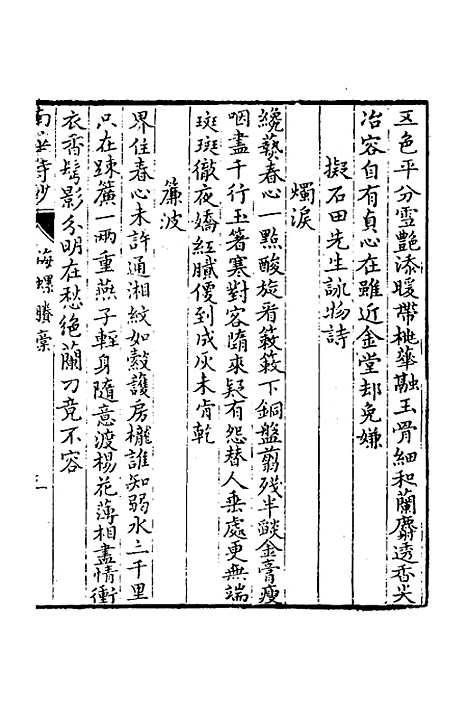 五色平分雪艶添暖帶桃華融玉骨細和蘭麝透香尖
冶容自有貞心在雖近金堂却免嫌
擬石田先生詠物詩
燭淚
纔爇春心一點酸旋看簌簌下銅盤翦殘半燄金膏瘦
咽盡千行玉箸寒對客隋來疑有怨替人垂處更無端
斑斑徹夜嬌紅膩儘到成灰未肯乾
簾波
界住春心未許通湘紋如縠護房櫳誰知弱水三千里
只在踈簾一兩重燕子輕身隨意渡楊花薄相盡情衝
衣香鬓影分明在愁絕蘭刀竟不容
詩鈔
海螺賸稾
三